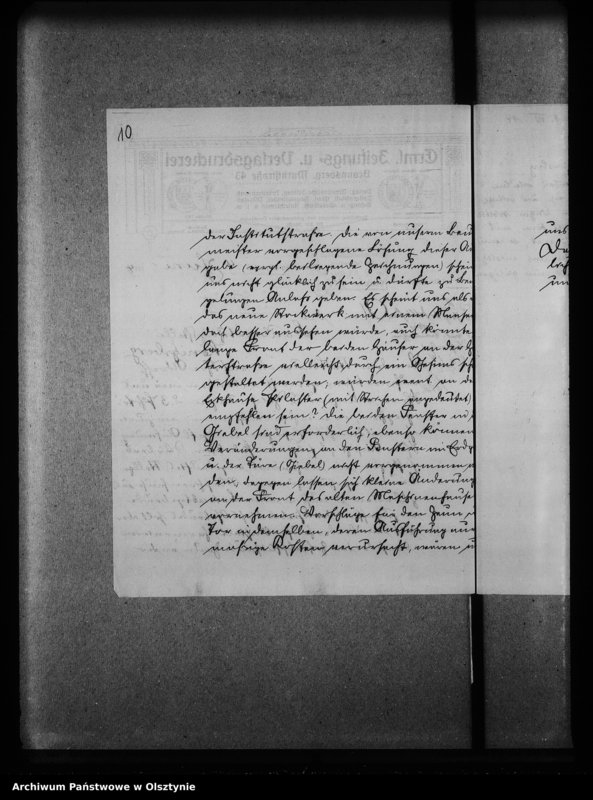 10
Erml. Zeitungs- u. Verlagsdruckerei
Braunsberg,
der Institutstraße. Die von unserm Bau
meister vorgeschlagene Lösung dieser Au
gabe (vergl. beiliegende Zeichnungen) schein
uns nicht glücklich zu sein u. dürfte zu Be
gelungen Anlaß geben. Es scheint uns, als
das neue Stockwerk mit einem Mansar
dach besser aussehen würde, auch könnte
lange Front der beiden Häuser an der
terstraße vielleicht durch ein
gestaltet werden; würden event. an de
Eckhause Pilaster (mit Strichen angedeutet)
empfehlen sein? Die beiden Fenster
Giebel sind erforderlich, ebenso können
Veränderungen an den Fenstern im Erdg
u. der Türe (Giebel) nicht vorgenommen
den, dagegen lassen sich kleine Änderung
an der Front des alten Maschinenhause
vornehmen. Vorschläge für den Zaun
Tor in demselben, deren Ausführung nur
mäßige Kosten verursacht, wären
uns
Archiwum Państwowe w Olsztynie